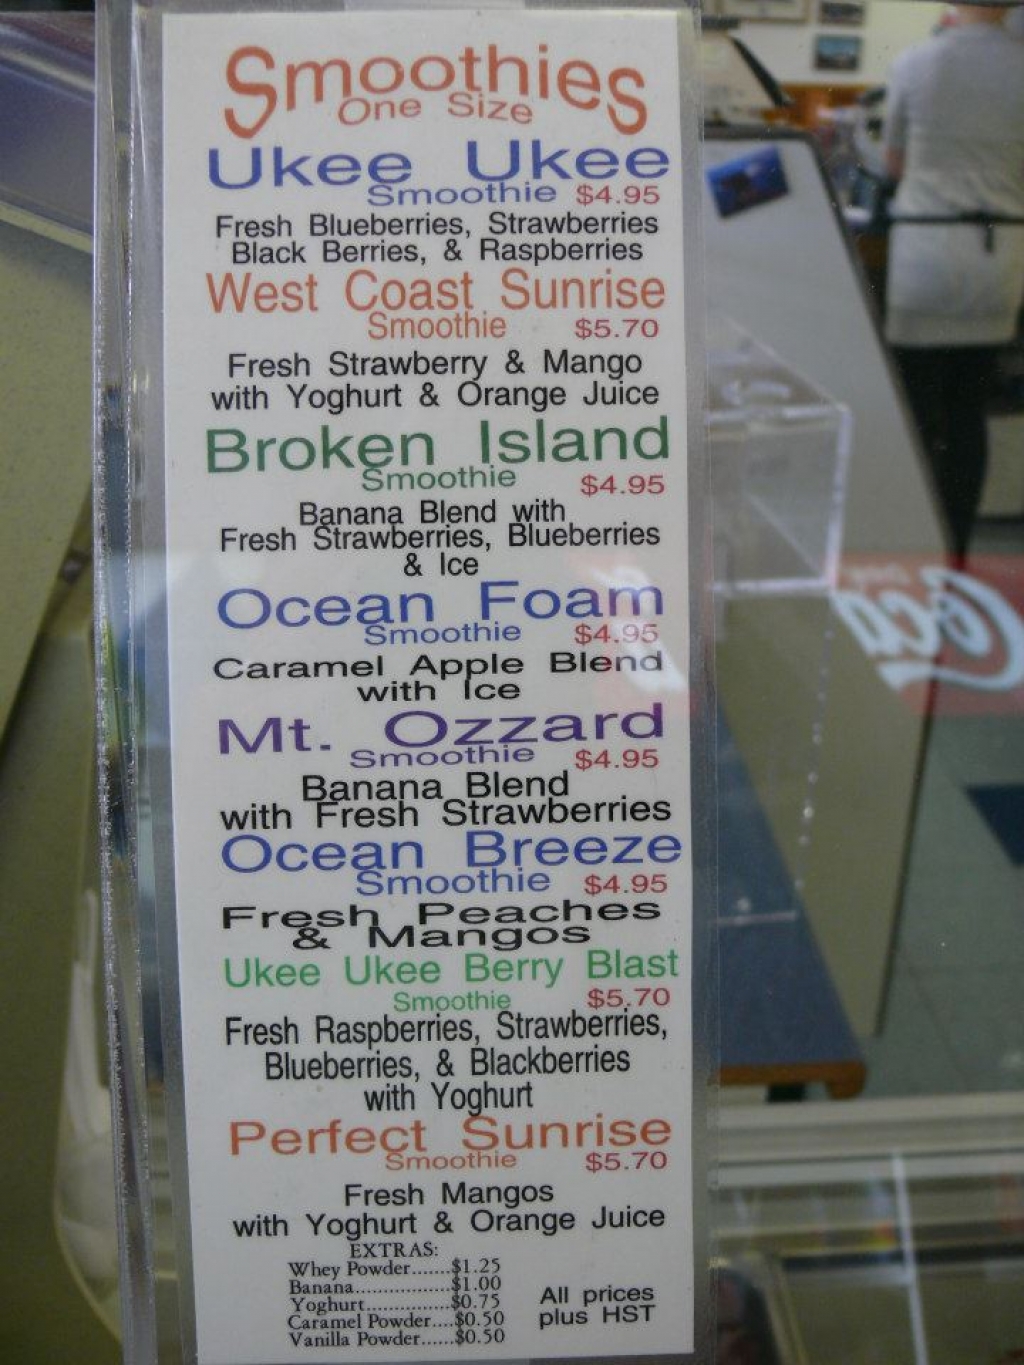 Smoothies
One Size
Ukee Ukee
Smoothie $4.95
Fresh Blueberries, Strawberries
Black Berries, & Raspberries
West Coast Sunrise
Smoothie $5.70
Fresh Strawberry & Mango
with Yoghurt & Orange Juice
Broken Island
Smoothie $4.95
Banana Blend with
Fresh Strawberries, Blueberries
& Ice
Ocean Foam
Smoothie $4.95
Caramel Apple Blend
with Ice
Mt. Ozzard
Smoothie $4.95
Banana Blend
with Fresh Strawberries
Ocean Breeze
Smoothie $4.95
Fresh Peaches
& Mangos
Ukee Ukee Berry Blast
Smoothie $5.70
Fresh Raspberries, Strawberries,
Blueberries, & Blackberries
with Yoghurt
Perfect Sunrise
Smoothie $5.70
Fresh Mangos
with Yoghurt & Orange Juice
EXTRAS:
Whey Powder.......$1.25
Banana.................$1.00
Yoghurt...............$0.75
Caramel Powder....$0.50
Vanilla Powder......$0.50
All prices
plus HST
Coca